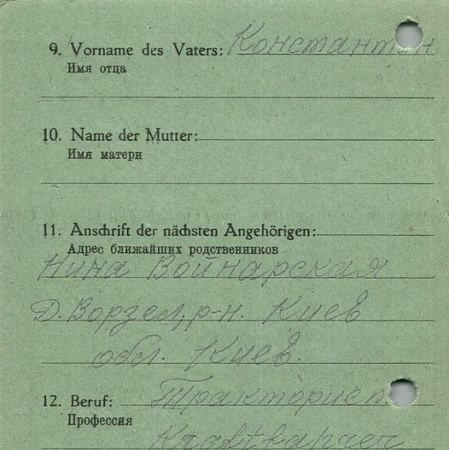 9. Vorname des Vaters: Константин
Имя отца
10. Name der Mutter:
Имя матери
11. Anschrift der nächsten Angehörigen:
Адрес ближайших родственников
Нина Войнарская
Д. Ворзел, р-н. Киев
обл. Киев.
12. Beruf: Тракторист
Профессия